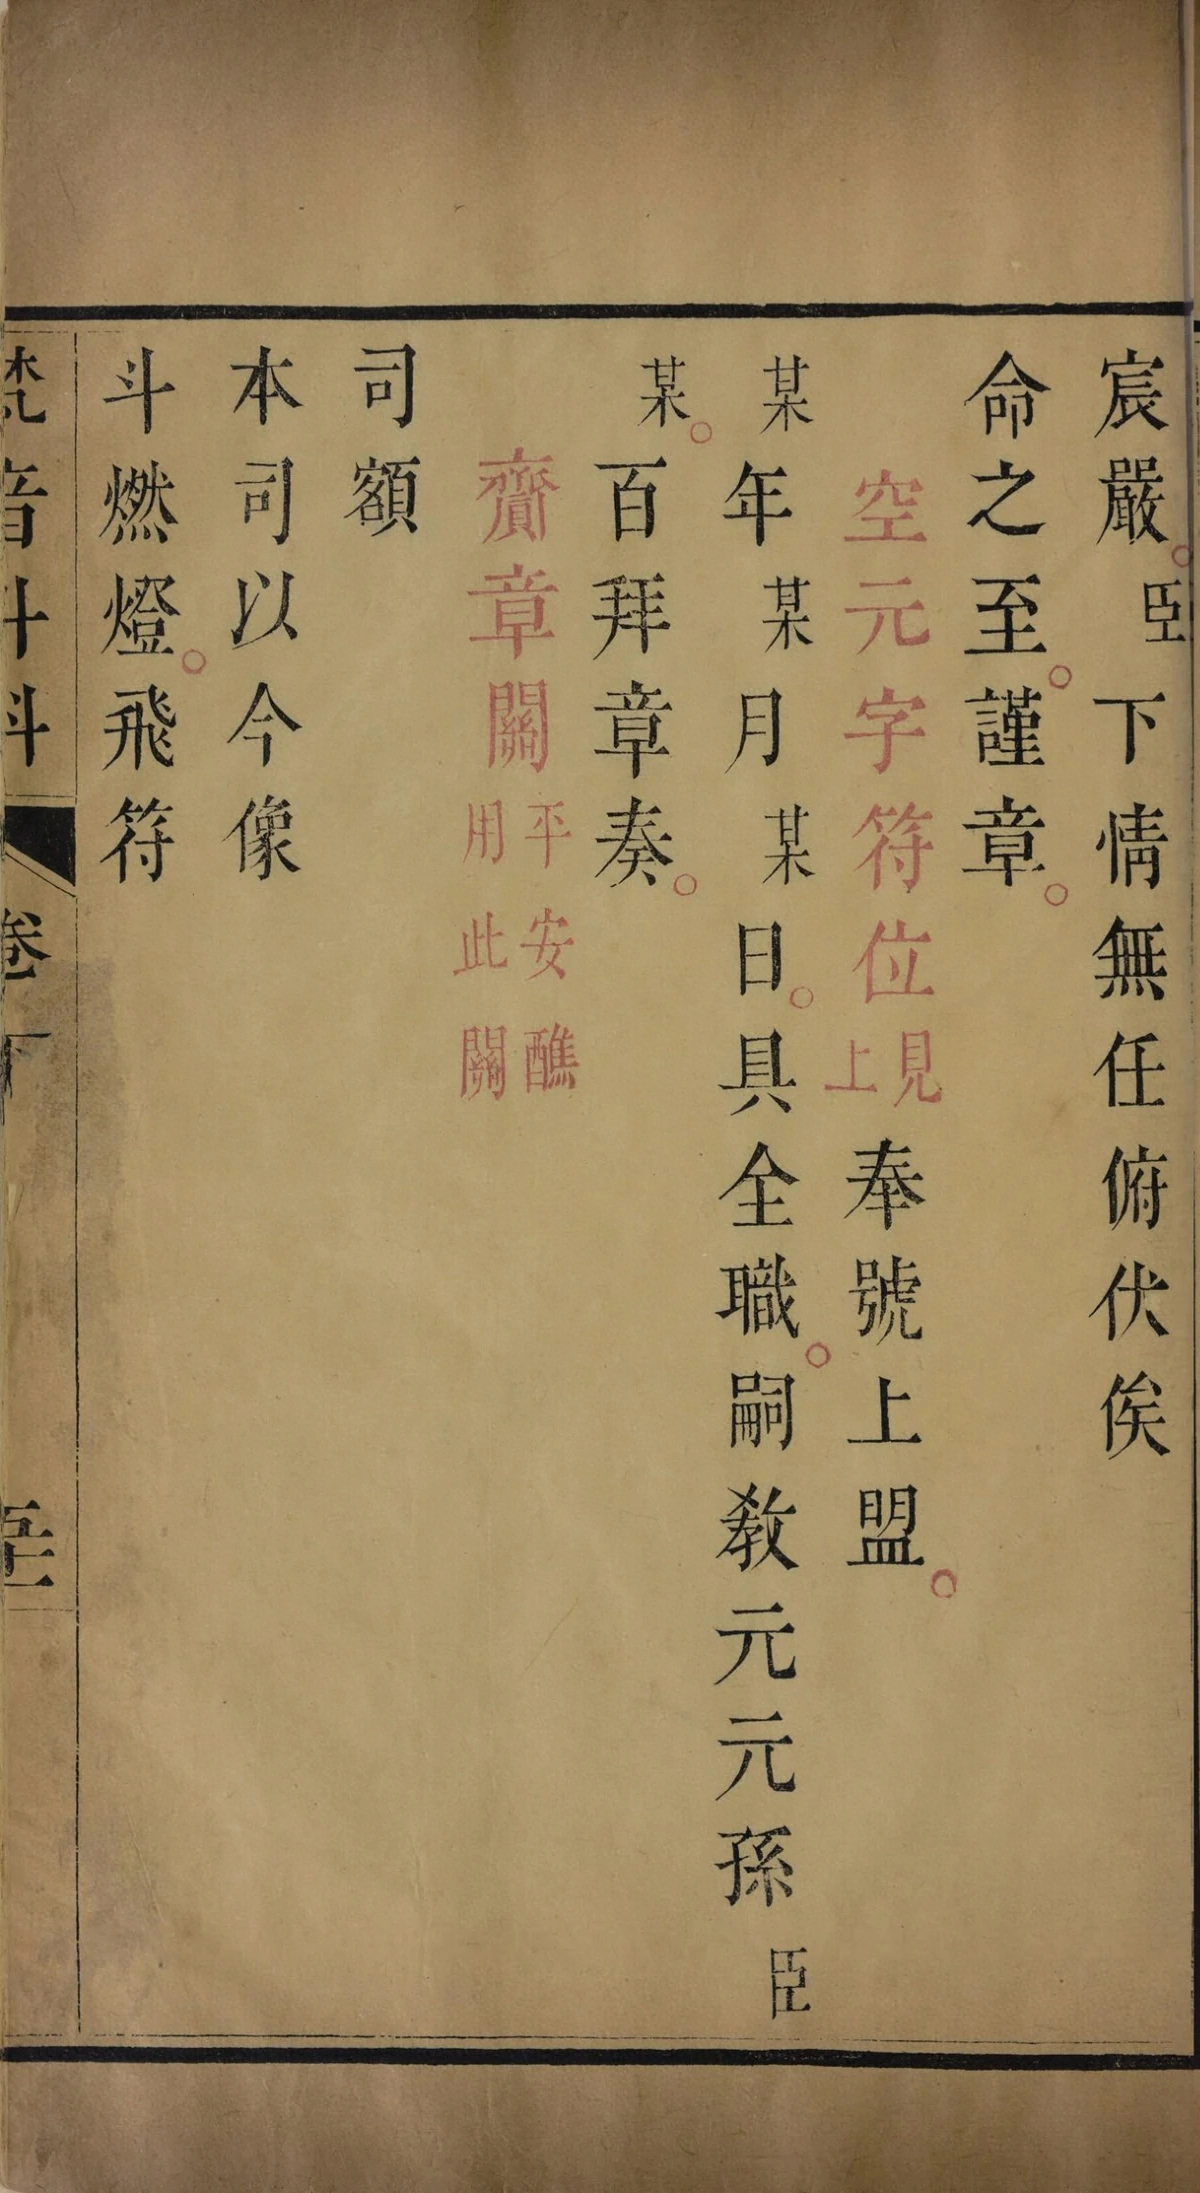 宸嚴。臣下情無任俯伏俟
命之至。謹章。
空元字符位見上奉號上盟。
某年某月某日。具全職。嗣教元元孫臣
某。百拜章奏。
齎章關平安醮用此關
司額
本司以今像
斗燃燈。飛符
梵音斗科 卷下